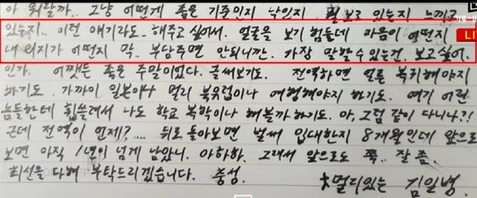 아 뭐랄까.. 그냥 어떻게 좋은 기준인지 낙인지 보고 있는지 느끼고
있는지. 이런 얘기라도 해주고 싶어서. 얼굴을 보기 힘든데 마음이 어떤지
내 위치가 어떤지 막. 부담주면 안되니깐. 가장 말할 수 있는건. 보고싶어.
LI
인가. 어쨌든 좋은 주말이었다. 글써보기도. 전역하면 얼른 복귀해야지
하기도. 가까이 일본이나 멀리 북유럽이나 여행해야지 하기도. 여기 어린
놈들한테 휩쓸려서 나도 학교 복학이나 해볼까 하기도. 아, 그럼 같이 다니나?!
근데 전역이 언제?.... 뒤로 돌아보면 벌써 입대한지 8개월인데 앞으로
보면 아직 1년이 넘게 남았니. 아하하. 그래서 앞으로도 쭉.. 잘 좀.
최선을 다해 부탁드리겠습니다. 충성.
멀리있는 김일병